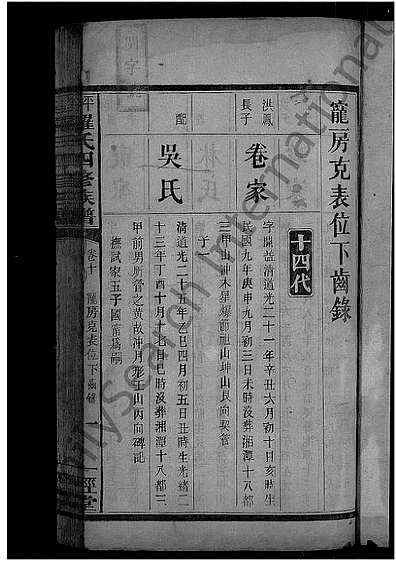 寵房克表位下齒錄
十四代
洪鳳
長子
卷家
字開益清道光二十一年辛丑六月初十日亥時生
民國九年庚申九月初三日未時沒葬湘潭十八都
三甲山冲木星塅前祖山坤山艮向契管
子一
配
吳氏
清道光二十五年乙巳四月初五日丑時生光緒二
十三年丁酉十月十七日巳時沒葬湘潭十八都三
甲前男所管之黃故冲月形土山丙向碑記
撫試家五子國甯為嗣
羅氏四修族譜
卷十
寵房克表位下齒錄
一